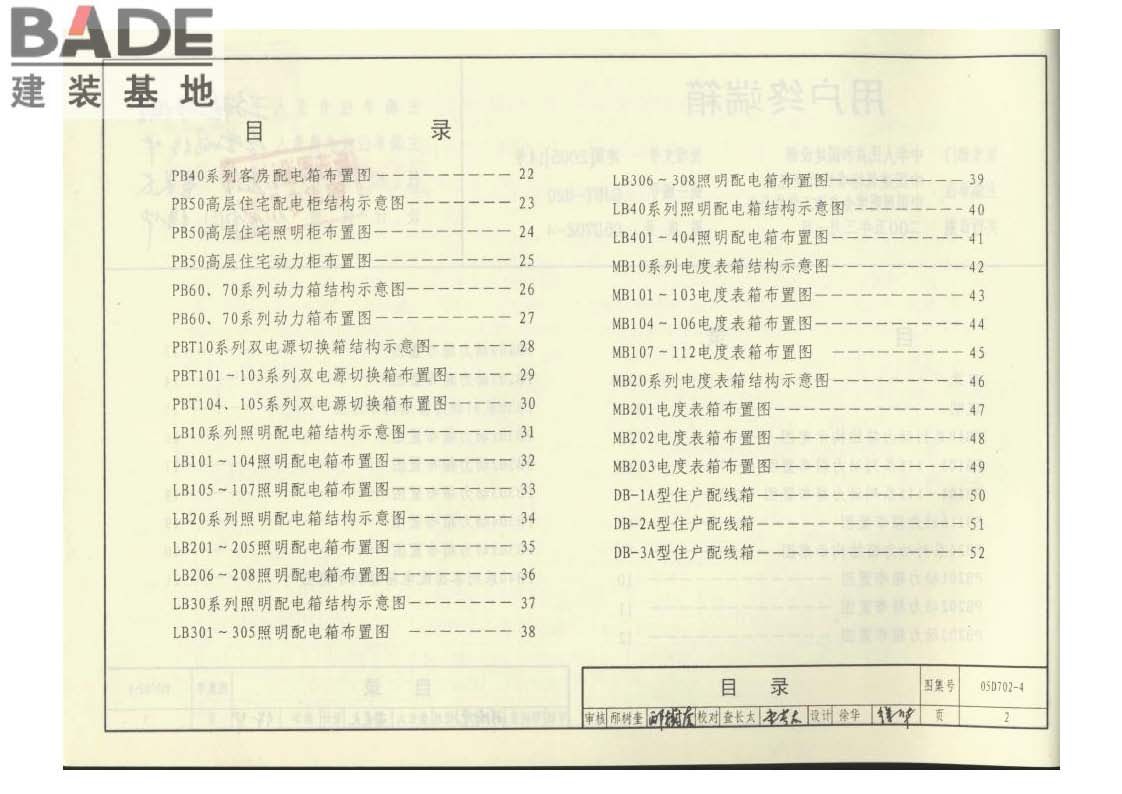 BADE
建装基地
目 录
PB40系列客房配电箱布置图———————22
PB50高层住宅配电柜结示意图—————23
PB50高层住宅照明柜布置图———————24
PB50高层住宅动力柜布置图———————25
PB60、70系列动力箱结构示意图—————26
PB60、70系列动力箱布置图———————27
PBT10系列双电源切换箱结构示意图————28
PBT101~103系列双电源切换箱布置图———29
PBT104、105系列双电源切换箱布置图———30
LB10系列照明配电箱结构示意图—————31
LB101~104照明配电箱布置图——————32
LB105~107照明配电箱布置图——————33
LB20系列照明配电箱结构示意图—————34
LB201~205照明配电箱布置图——————35
LB206~208照明配电箱布置图——————36
LB30系列照明配电箱结构示意图—————37
LB301~305照明配电箱布置图 —————38
LB306~308照明配电箱布置图———————39
LB40系列照明配电箱结构示意图 —————40
LB401~404照明配电箱布置图———————41
MB10系列电度表箱结构示意图———————42
MB101~103电度表箱布置图————————43
MB104~106电度表箱布置图————————44
MB107~112电度表箱布置图 ———————45
MB20系列电度表箱结构示意图———————46
MB201电度表箱布置图——————————47
MB202电度表箱布置图——————————48
MB203电度表箱布置图——————————49
DB-1A型住户配线箱———————————50
DB-2A型住户配线箱———————————51
DB-3A型住户配线箱———————————52
目 录 图集号 05D702-4
审核 邴树奎 校对 查长太 设计 徐华 页 2